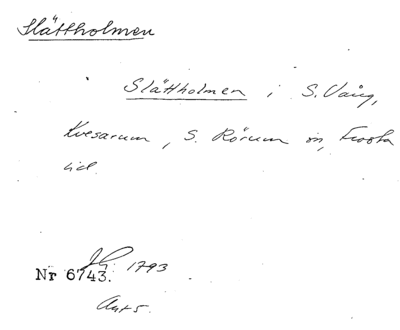 Slättholmen
Slättholmen i S. Vång,
Kvesarum, S. Rörum sn, Frosta
hd.
1793
Nr 6743.
Akt 5.